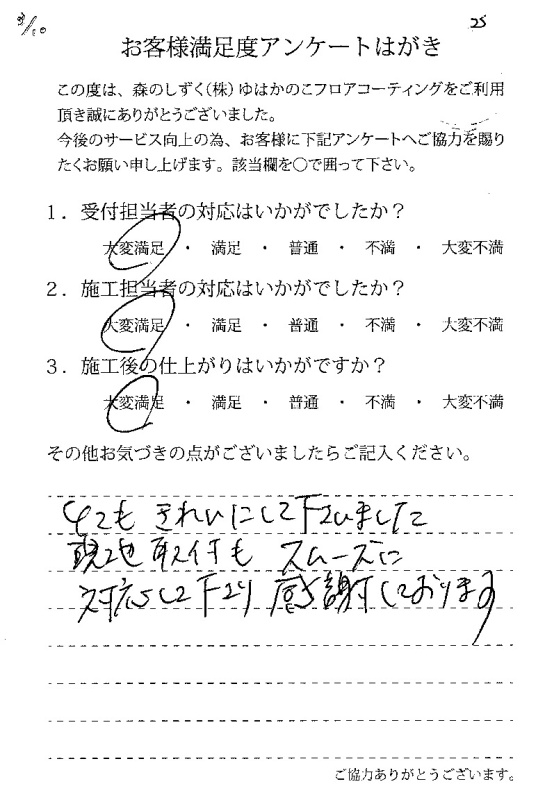 3/10
25
お客様満足度アンケートはがき
この度は、森のしずく(株)ゆはかのこフロアコーティングをご利用
頂き誠にありがとうございました。
今後のサービス向上の為、お客様に下記アンケートへご協力を賜り
たくお願い申し上げます。該当欄を○で囲って下さい。
1．受付担当者の対応はいかがでしたか？
大変満足 ・ 満足 ・ 普通 ・ 不満 ・ 大変不満
2．施工担当者の対応はいかがでしたか？
大変満足 ・ 満足 ・ 普通 ・ 不満 ・ 大変不満
3．施工後の仕上がりはいかがですか？
大変満足 ・ 満足 ・ 普通 ・ 不満 ・ 大変不満
その他お気づきの点がございましたらご記入ください。
とてもきれいにして下さいました
現地取付もスムーズに
対応して下さり感謝しております
ご協力ありがとうございます。